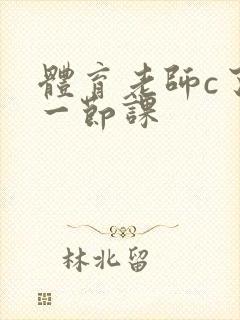 體育老師c了
一節課
林北留